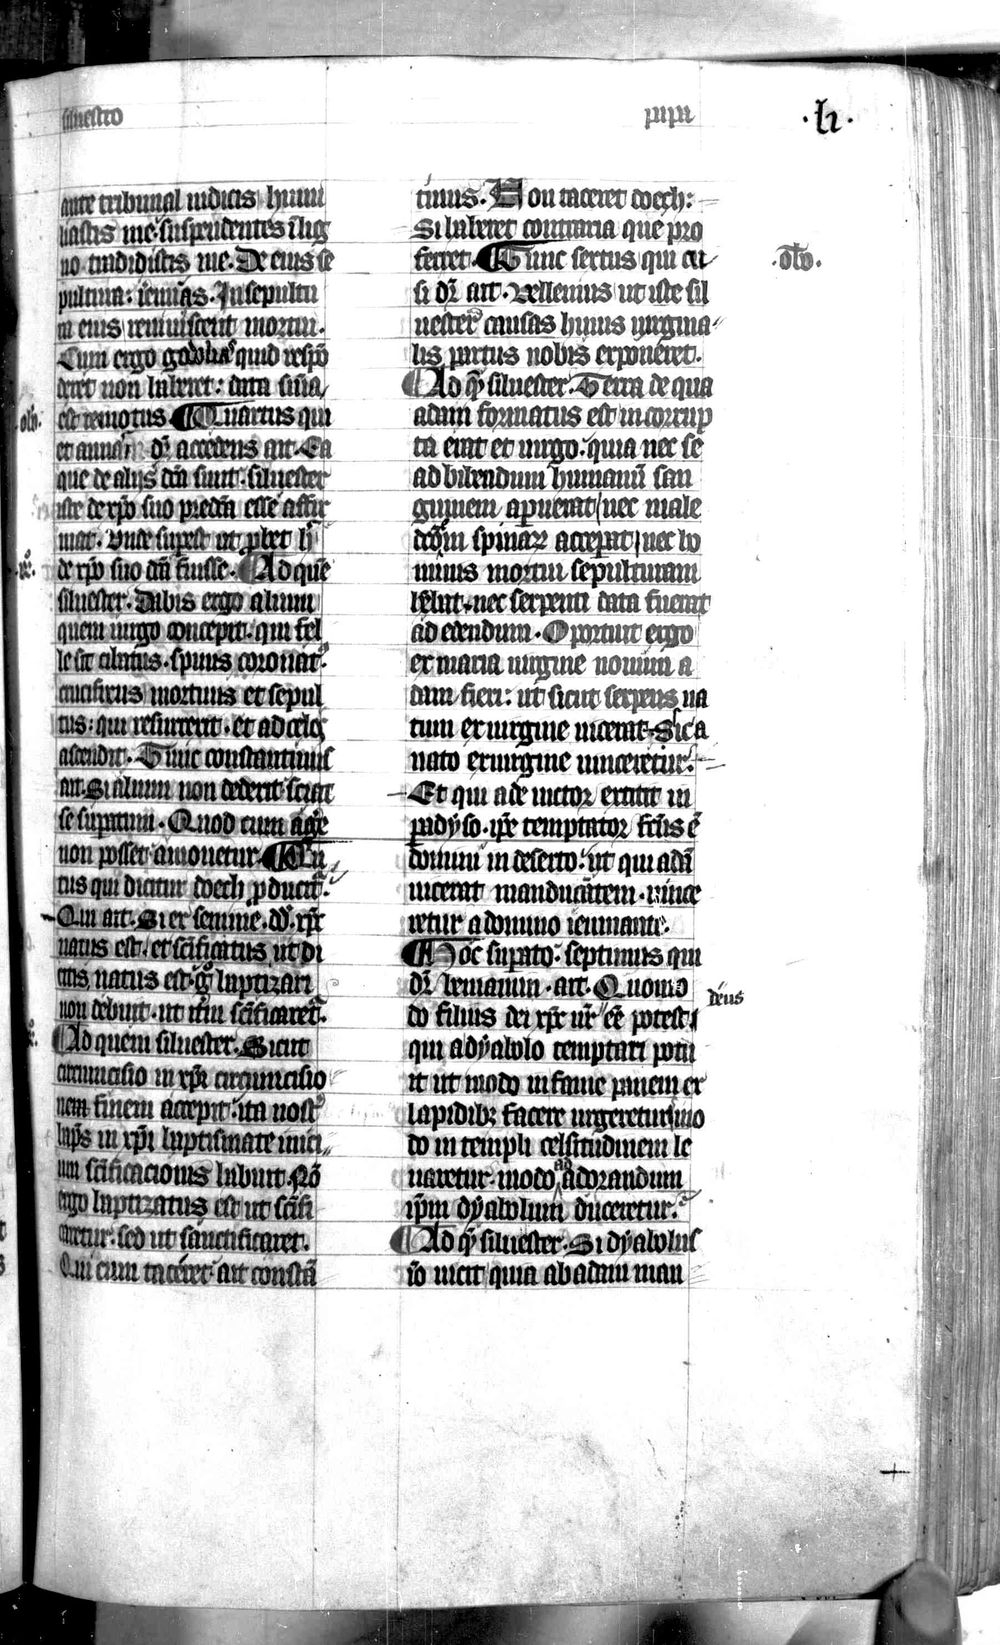 siluestro
papa
.li.
ante tribunal iudicis humi
liastis me. suspendentes ĩ lig
no tradidistis me. De eius se
pultura: ieremias. In sepultu
ra eius reuiuiscent mortui.
Cum ergo godolias quid respõ
deret non haberet: data sñia
est remotus. Quartus qui
et annas dr̃ accedens ait. Ea
que de alijs dc̃a sunt. siluester
iste de xp̃o suo predc̃a esse affir
mat. vnde suꝑest ut ꝓbet h̃
de xp̃o suo dc̃a fuisse. Ad quẽ
siluester. Dabis ergo alium
quem uirgo concepit. qui fel
le sit cibatus. spinis coronat᷒.
crucifixus mortuus et sepul
tus: qui resurrexit. et ad celos
ascendit. Tunc constantinus
ait. Si alium non dederit sciat
se suꝑatum. Quod cum agẽ
non posset amouetur. Quin
tus qui dicitur doech ꝓducit᷒.
Qui ait. Si ex semine. dd̃. xp̃c
natus est. et sc̃ificatus ut di
citis natus est. gͦ baptizari
non debuit. ut itm̃ sc̃ificaret᷒.
Ad quem siluester. Sicut
circumcisio in xp̃i circumcisio
nem finem accepit. ita nost᷒
bap̃s in xp̃i baptismate inici
um sc̃ificacionis habuit. Nõ
ergo baptizatus est ut sc̃ifi
caretur. sed ut sanctificaret.
Qui cum taceret ait constã
tinus. Non taceret doech:
Si haberet contraria que pro
ferret. Tunc sextus qui cu
si dr̃ ait. Vellemus ut iste sil
uester causas huius uirgina
lis partus nobis exponeret.
Ad qͫ siluester. Terra de qua
adam formatus est incorrup
ta erat et uirgo. quia nec se
ad bibendum humanũ san
guinem aꝑuerat nec male
dcõm spinaꝝ acceꝑat nec ho
minis mortui sepulturam
hẽbat. nec serpenti data fuerat
ad edendum. Oportuit ergo
ex maria uirgine nouum a
dam fieri: ut sicut serpens na
tum ex uirgine uicerat. Sic a
nato ex uirgine uinceretur.
Et qui ade uictor extitit in
ꝑadyso. ip̃e temptator fc̃us ẽ
domini in deserto. ut qui adã
uicerat manducãtem. uince
retur a domino ieiunante.
Hoc suꝑato. septimus qui
dr̃ beniamin. ait. Quomo
do filius dei xp̃c ur̃ eẽ potest
deus
qui a dyabolo temptari potu
it ut modo in fame panem ex
lapidibꝫ facere urgeretur mo
do in templi celsitudinem le
uaretur. modo ad adorandum
ip̃m dyabolum duceretur.
Ad qͫ siluester. Si dyabolus
iõ uicit quia ab adam man